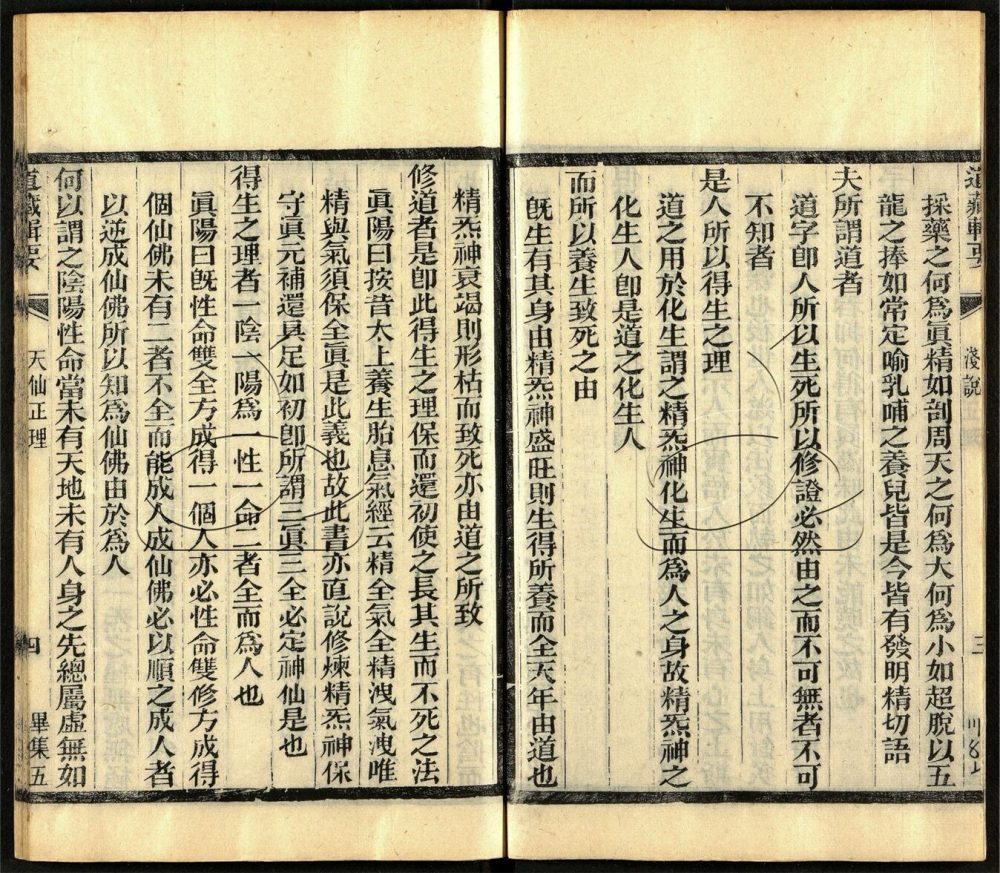 採藥之何爲眞精如剖周天之何爲大何爲小如超脫以五
龍之捧如常定喻乳哺之養兒皆是今皆有發明精切語
夫所謂道者
道字卽人所以生死所以修證必然由之而不可無者不可
不知者
是人所以得生之理
道之用於化生謂之精炁神化生而爲人之身故精炁神之
化生人卽是道之化生人
而所以養生致死之由
旣生有其身由精炁神盛旺則生得所養而全天年由道也
淺說
三
精炁神衰竭則形枯而致死亦由道之所致
修道者是卽此得生之理保而還初使之長其生而不死之法
眞陽曰按昔太上養生胎息氣經云精全氣全精洩氣洩唯
精與氣須保全眞是此義也故此書亦直說修煉精炁神保
守眞元補還具足如初卽所謂三眞三全必定神仙是也
得生之理者一陰一陽爲一性一命二者全而爲人也
眞陽曰旣性命雙全方成得一個人亦必性命雙修方成得
個仙佛未有二者不全而能成人成仙佛必以順之成人者
以逆成仙佛所以知爲仙佛由於爲人
何以謂之陰陽性命當未有天地未有人身之先總屬虛無如
道藏輯要
天仙正理
四
畢集五